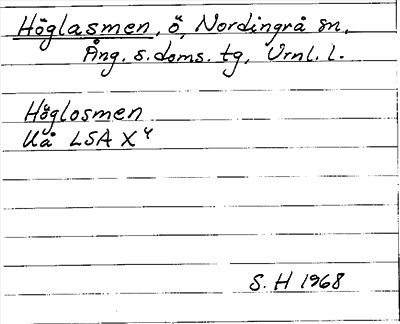 Höglasmen, ö, Nordingrå sn,
Ång. s. doms. tg, Vrnl. l.
Höglosmen
Uå LSA X 4
S. H 1968